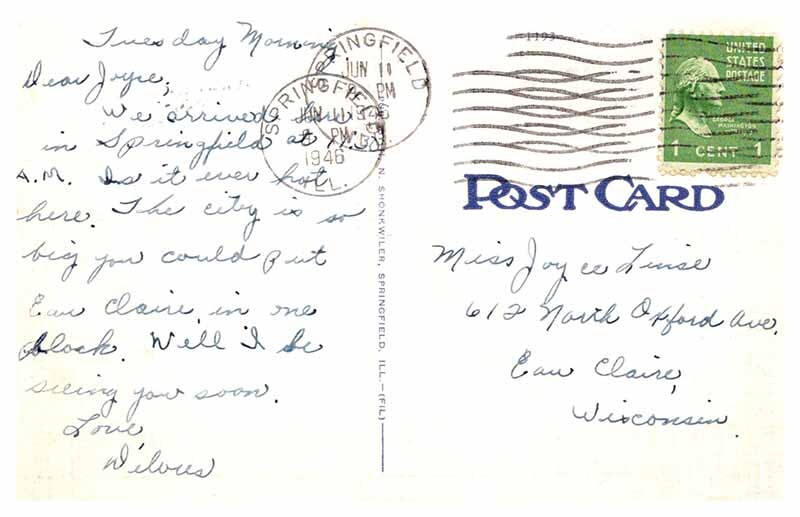 Tuesday Morning
Dear Joyce,
We arrived here
in Springfield at 11:30
A.M. Is it ever hot
here. The city is so
big you could put
Eau Claire in one
block. Well I be
seeing you soon.
Love
Delores
SPRINGFIELD
JUN 11
PM
SPRINGFIELD
JUN 11
PM
1946
ILL.
N. SHONKWILER, SPRINGFIELD, ILL.—(FIL)
1193
UNITED
STATES
POSTAGE
GEORGE
WASHINGTON
1 CENT 1
POST CARD
Miss Joyce Linse
612 North Oxford Ave.
Eau Claire,
Wisconsin